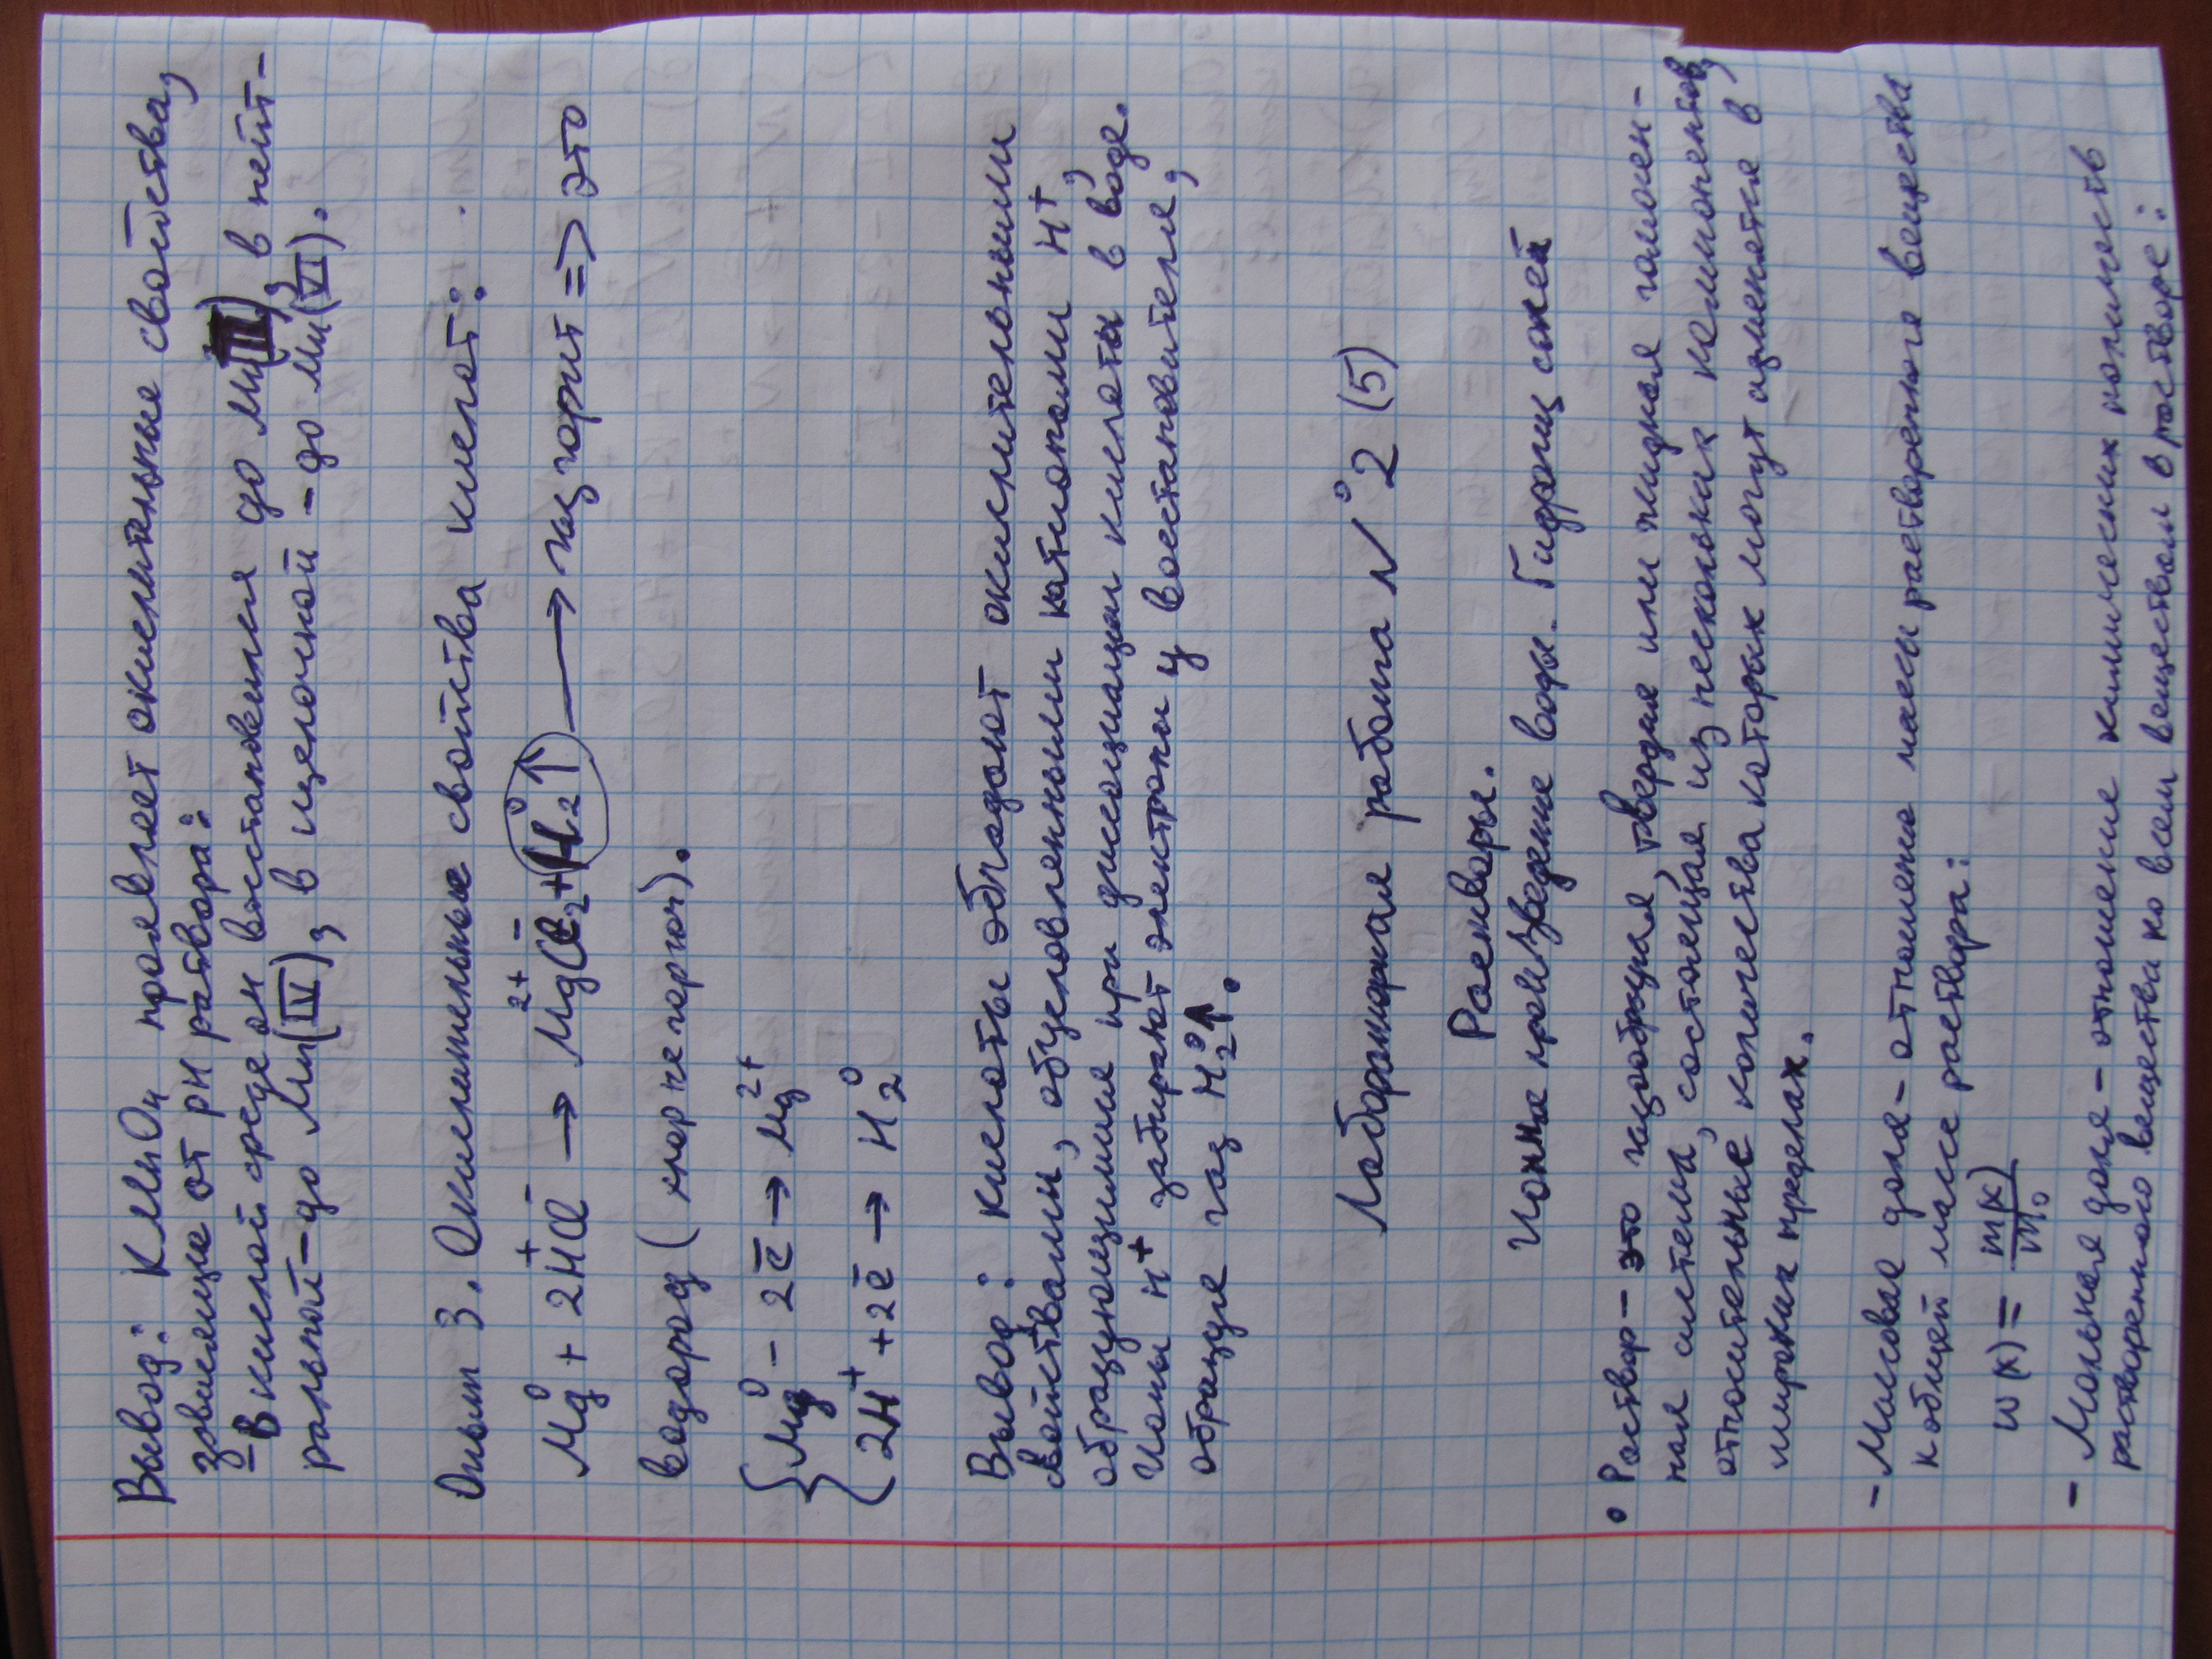 Вывод: KMnO₄ проявляет окислительные свойства,
зависящие от pH раствора:
– В кислой среде он восстановился до Mn(II), в нейт-
ральной – до Mn(IV), в щелочной – до Mn(VI).
Опыт 3. Окислительные свойства кислот:
Mg⁰ + 2H⁺Cl⁻ → Mg²⁺Cl⁻₂ + H₂⁰↑ → газ горит => это
водород (хлор не горюч).
Mg⁰ – 2ē → Mg²⁺
2H⁺ + 2ē → H₂⁰
Вывод: кислоты обладают окислительными
свойствами, обусловленными катионами H⁺,
образующимися при диссоциации кислоты в воде.
Ионы H⁺ забирают электроны у восстановителя,
образуя газ H₂⁰↑.
Лабораторная работа № 2 (5)
Растворы.
Ионное произведение воды. Гидролиз солей
• Раствор – это газообразная, твердая или жидкая гомоген-
ная система, состоящая из нескольких компонентов,
относительные количества которых могут изменятся в
широких пределах.
– Массовая доля – отношение массы растворенного вещества
к общей массе раствора:
w(x) = m(x) / m₀
– Мольная доля – отношение химических количеств
растворенного вещества ко всем веществам в растворе: